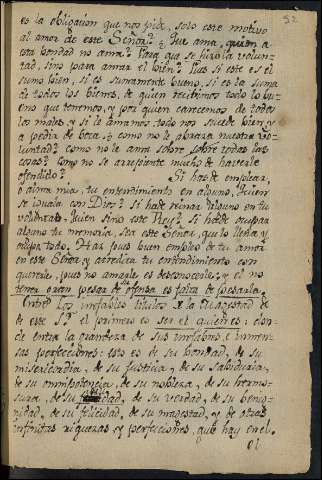 52
es la obligacion que nos pide, solo este motivo
al amor de este Señor? Que ama, quien a
esta bondad no ama? Para que se hizo la volun-
tad, sino para amar el bien? Pues si este es el
sumo bien, si es sumamente bueno, si es la suma
de todos los bienes, de quien recibimos todo lo bu-
eno que tenemos, y por quien carecemos de todos
los males, y si le amamos todo nos sucede bien, y
a pedir de boca, como no le abraza nuestra vo-
luntad? como no le ama sobre sobre todas las
cosas? Como no se arrepiente mucho de haverle
ofendido? Si has de emplear,
o alma mia, tu entendimiento en alguno, quien
se iguala con Dios? Si has de rendir alguno en tu
voluntad, quien sino este Rey? Si has de ocupar
alguno tu memoria, sea este Señor, que lo llena, y
ocupa todo. Haz pues buen empleo de tu amor
en este Señor, y acredita tu entendimiento con
quererle, pues no amarle es desconocerle, y el no
tener gran pesar de su ofensa es falta de pesarla.
Entre los inefables titulos de la Magestad de
de este Sr. el primero es ser el quien es: don-
de entra la grandeza de sus infinitas, e inmen-
sas perfecciones: esto es de su bondad, de su
misericordia, de su justicia, de su sabiduria,
de su omnipotencia, de su nobleza, de su hermo-
sura, de su , de su verdad, de su benig-
nidad, de su felicidad, de su magestad, y de otras
infinitas riquezas, y perfecciones, que hay en el.